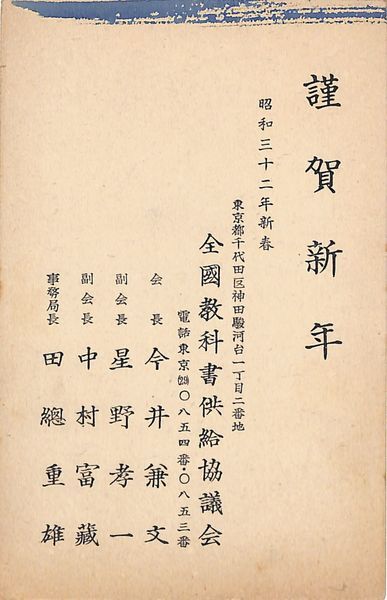 謹賀新年
昭和三十二年新春
東京都千代田区神田駿河台一丁目二番地
全國教科書供給協議会
電話東京(29)〇八五四番・〇八五三番
会長 今井兼文
副会長 星野孝一
副会長 中村富藏
事務局長 田總重雄